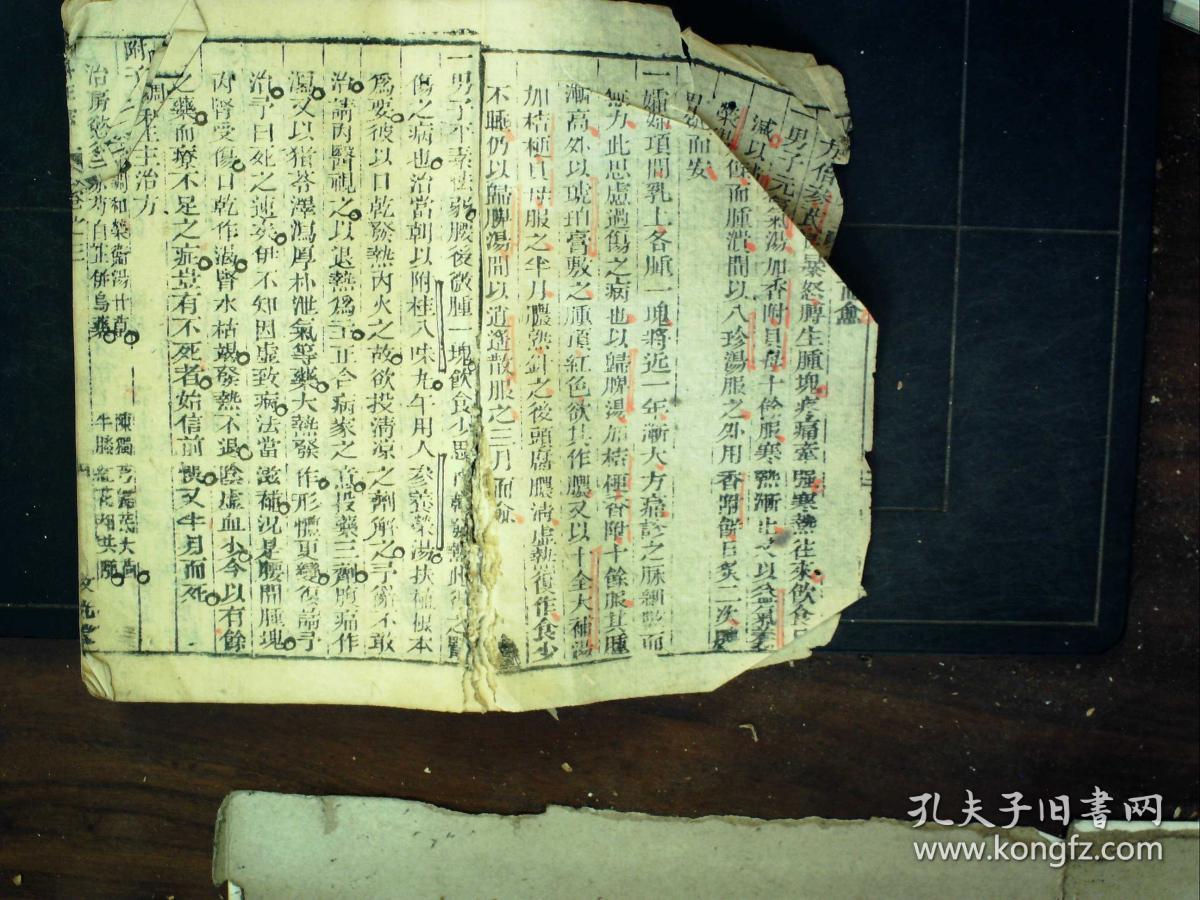 一男子元
暴怒脖生腫塊疼痛牽強寒熱往來飲食
減以
氣湯加香附貝母十餘服寒熱漸止又以益氣養
榮
而腫潰間以八珍湯服之外用香附餅日炙二次
而安
一孀婦項間乳上各腫一塊將近一年漸大方痛診之脉細數而
無力此思慮過傷之病也以歸脾湯加桔梗香附十餘服其腫
漸高外以琥珀膏敷之腫頂紅色欲其作膿又以十全大補湯
加桔梗貝母服之半月膿熟針之後頭腐膿淸虛熱復作食少
不睡仍以歸脾湯間以逍遙散服之三月而愈
一男子平素怯弱腰後微腫一塊飲食少思
傷之病也治當朝以附桂八味丸午用人參養榮湯扶補根本
爲要彼以口乾發熱內火之故欲投清凉之劑解之予辭不敢
治請內醫視之以退熱爲主正合病家之意投藥三劑腹痛作
瀉又以猪苓澤瀉厚朴泄氣等藥大熱發作形體更變復請予
治予曰死之速矣併不知因虛致病法當滋補況是腰間腫塊
內腎受傷口乾作渴腎水枯竭發熱不退陰虛血少今以有餘
之藥而療不足之症豈有不死者始信前悞又半月而死
調和主治方
調和榮衞湯
治房慾
白芷併烏藥
陳獨
大茴
牛膝紅花
共
卷之三
文光堂
孔夫子旧书网
www.kongfz.com